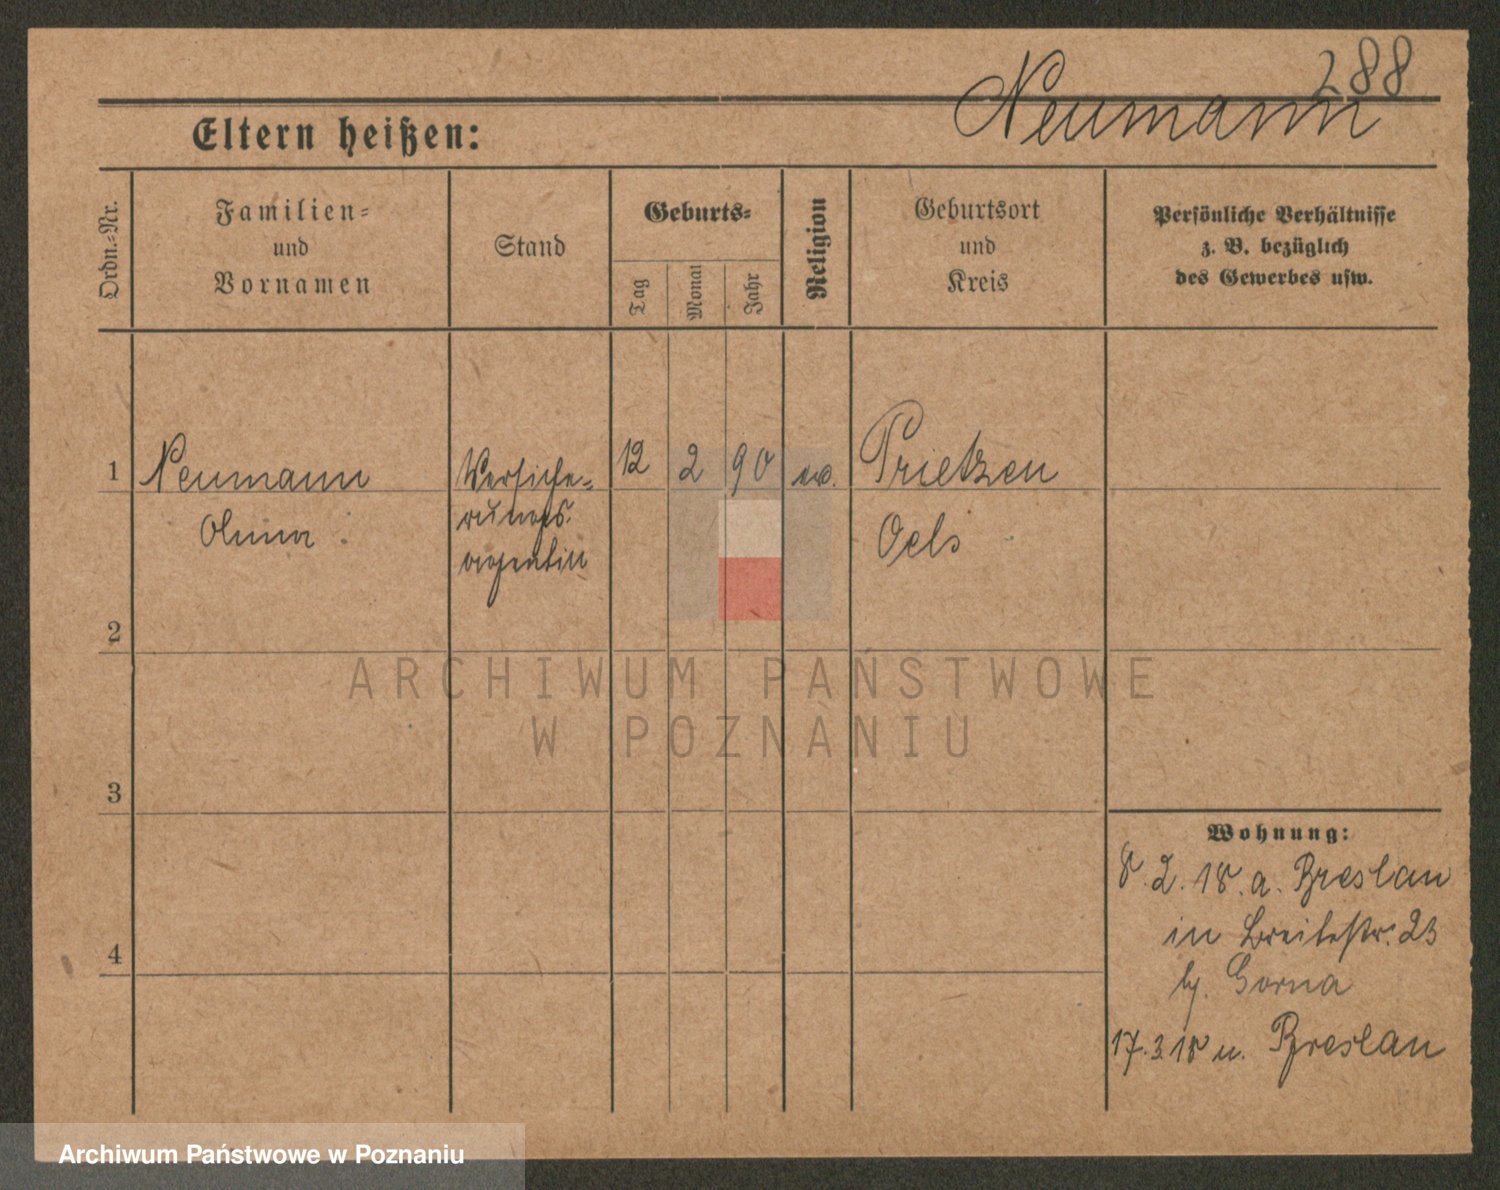 288
Neumann
Eltern heißen:
Ordn.-Nr.
Familien-
und
Vornamen
Stand
Geburts-
Tag
Monat
Jahr
Religion
Geburtsort
und
Kreis
Persönliche Verhältnisse
z. B. bezüglich
des Gewerbes usw.
1
Neumann
Anna
Versiche-
rungs.
agentin
12
2
90
ev.
Prietzen
Oels
2
ARCHIWUM PAŃSTWOWE
W POZNANIU
3
Wohnung:
8. 2. 18. a. Breslau
in Breitestr. 23
b. Gorna
4
17. 3. 18 n. Breslau
Archiwum Państwowe w Poznaniu